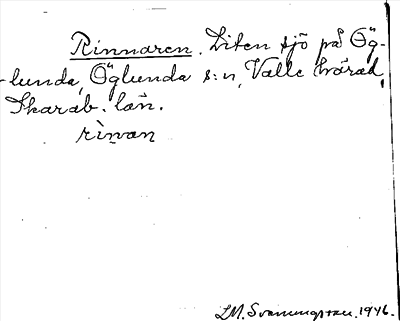 Rinnaren. Liten sjö på Ög-
lunda, Öglunda s:n, Valle härad,
Skarab. län.
rìnan
LM. Svanungsson. 1946.